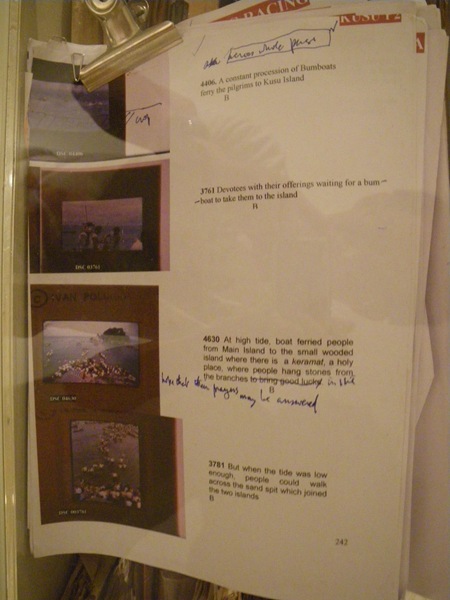 RACING
KUSU
4406. A constant procession of Bumboats
ferry the pilgrims to Kusu Island
B
DSC 04406
3761 Devotees with their offerings waiting for a bum
boat to take them to the island
B
DSC 03761
4630 At high tide, boat ferried people
from Main Island to the small wooded
island where there is a keramat, a holy
place, where people hang stones from
the branches to bring good luck
B
prayers may be answered
3781 But when the tide was low
enough, people could walk
across the sand spit which joined
the two islands
B
242